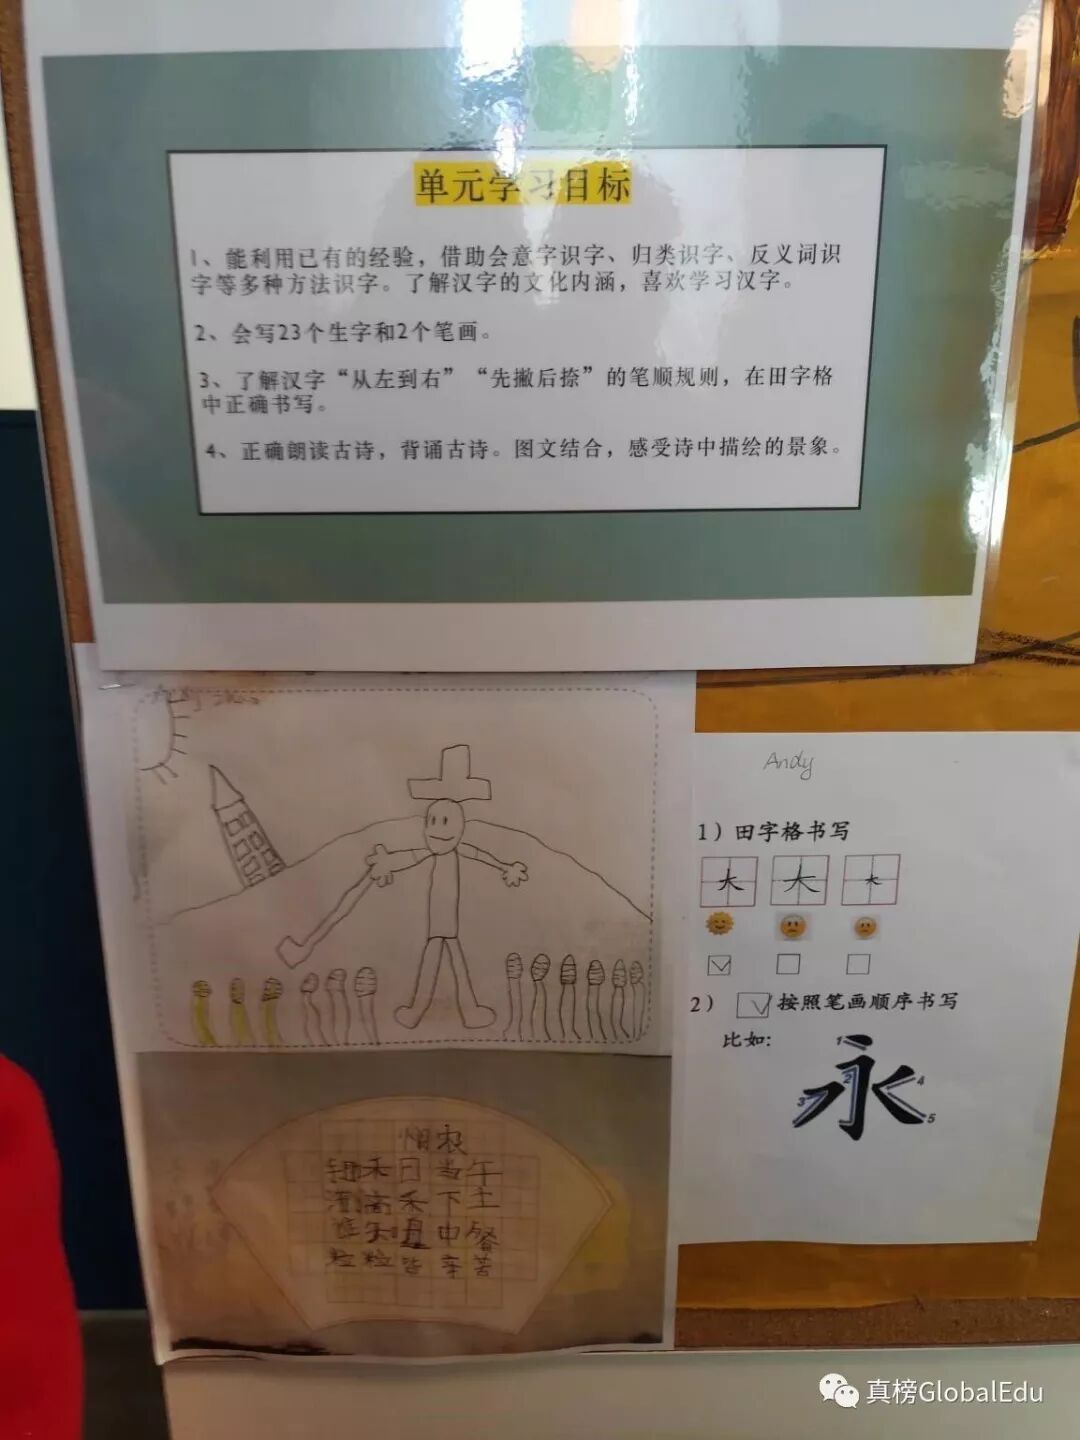 单元学习目标
1、能利用已有的经验，借助会意字识字、归类识字、反义词识
字等多种方法识字。了解汉字的文化内涵，喜欢学习汉字。
2、会写23个生字和2个笔画。
3、了解汉字“从左到右”“先撇后捺”的笔顺规则，在田字格
中正确书写。
4、正确朗读古诗，背诵古诗。图文结合，感受诗中描绘的景象。
Andy
1）田字格书写
大 大 大
2） 按照笔画顺序书写
比如：
永
1
2
3
4
5
悯农
锄禾日当午
滴禾下土
谁知中餐
粒粒皆辛苦
真榜GlobalEdu